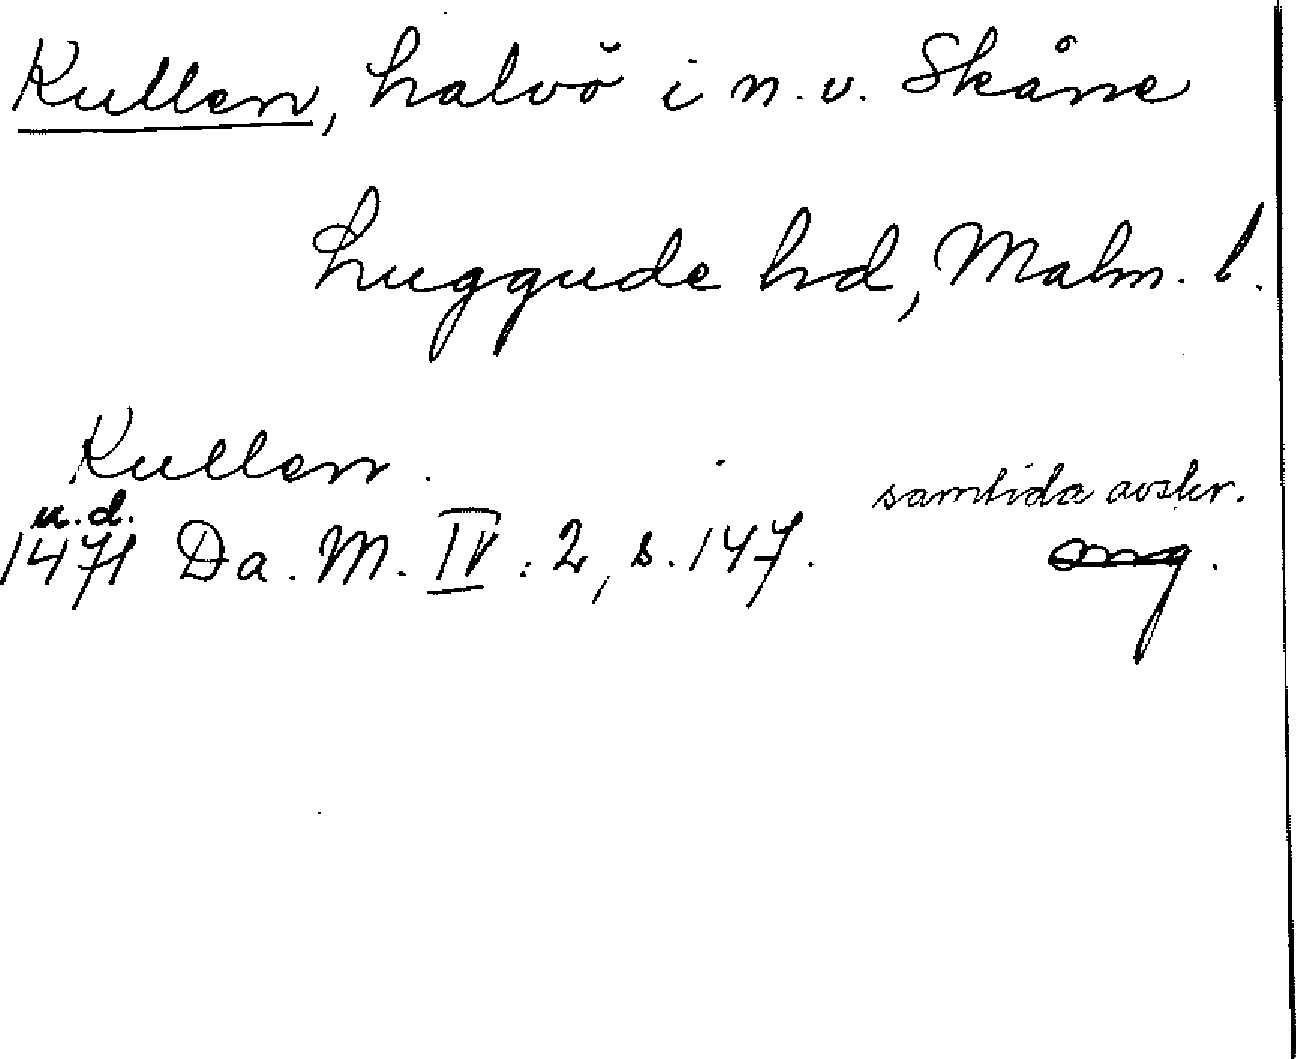 Kullen, halvö i n.v. Skåne
Luggude hd, Malm. l.
Kullen.
samtida avskr.
u.d.
1471 Da. M. IV : 2, s. 147.